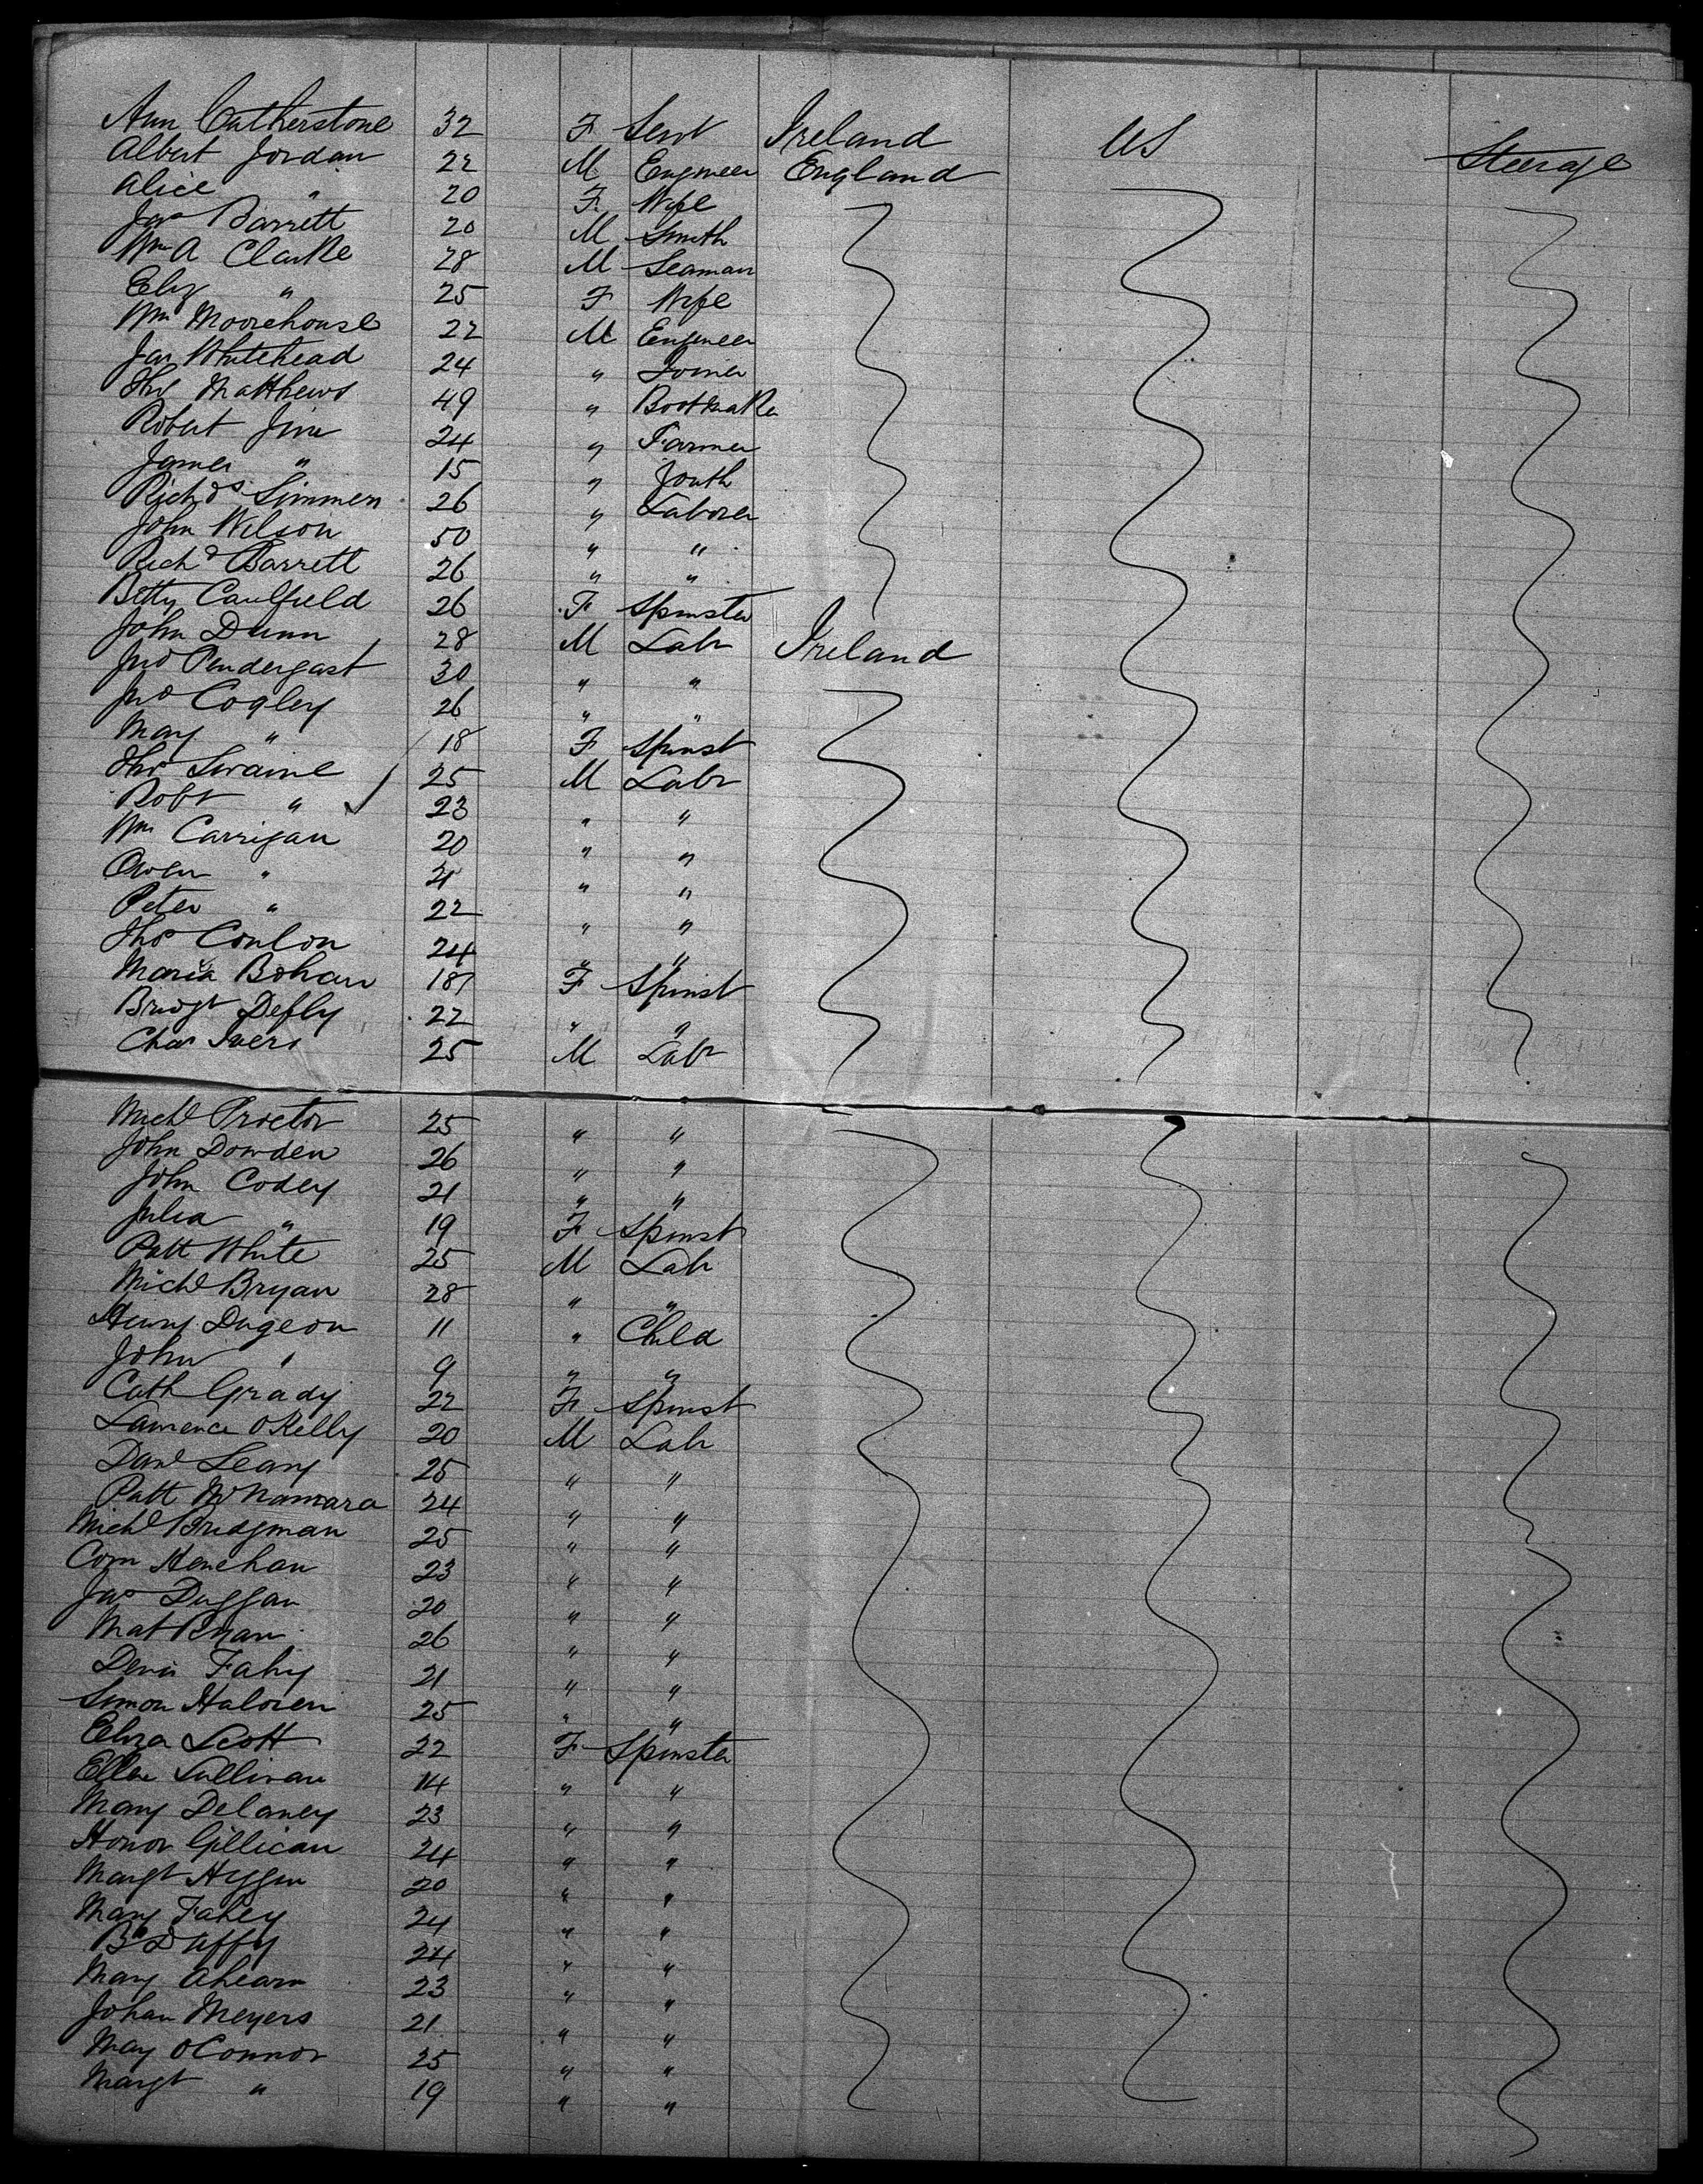 Ann Catherstone 32 F Servt Ireland US Steerage
Albert Jordan 22 M Engineer England
Alice " 20 F Wife
Jas Barrett 20 M Smith
Wm A Clarke 28 M Seaman
Eliz " 25 F Wife
Wm Moorehouse 22 M Engineer
Jas Whitehead 24 " Joiner
Thos Matthews 49 " Bootmaker
Robert 24 " Farmer
James " 15 " Youth
Richds Simmen 26 " Laborer
John Wilson 50 " "
Richd Barrett 26 " "
Betty Caulfield 26 F Spinster
John Dunn 28 M Labr Ireland
Jno Pendergast 30 " "
Jno Cogley 26 " "
Mary " 18 F Spinst
Thos Swaine 25 M Labr
Robt " 23 " "
Wm Carrigan 20 " "
Owen " 21 " "
Peter " 22 " "
Thos Conlon 24 " "
Maria Bohan 18 F Spinst
Bridgt Defly 22 " "
Chas Ivers 25 M Labr
Michl Proctor 25 " "
John Dowden 26 " "
John Codey 21 " "
Julia " 19 F Spinst
Patt White 25 M Labr
Michl Bryan 28 " "
Henry Dugeon 11 " Child
John " 9 " "
Cath Grady 22 F Spinst
Lawrence OKelly 20 M Labr
Danl Leary 25 " "
Patt McNamara 24 " "
Michl Bridgman 25 " "
Corn Henehan 23 " "
Jas Duggan 20 " "
Mat Ryan 26 " "
Denis Fahy 21 " "
Simon Haloren 25 " "
Eliza Scott 22 F Spinster
Ellen Sullivan 14 " "
Mary Delaney 23 " "
Honor Gillican 24 " "
Margt 20 " "
Mary Fahey 24 " "
Bt Duffy 24 " "
Mary Ahearn 23 " "
Johan Meyers 21 " "
May OConnor 25 " "
Margt " 19 " "